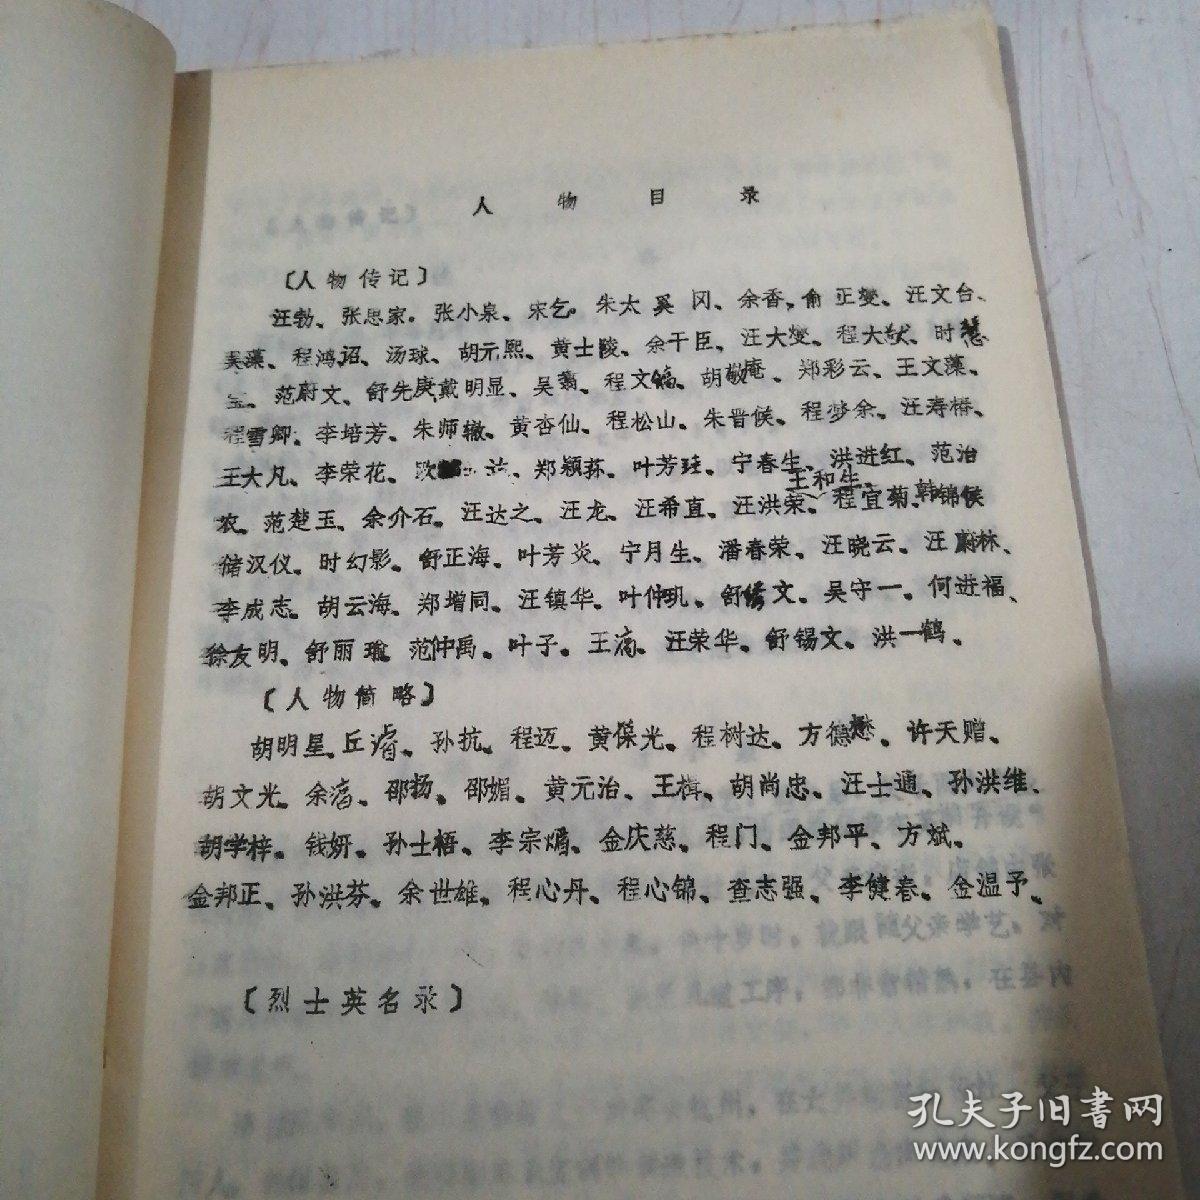 人物目录
〔人物传记〕
汪勃、张思家。张小泉、宋乞。朱太 冈、余香、俞正燮、汪文台、
吴藻、程鸿诏、汤球、胡元熙、黄士陵、余干臣、汪大燮、程大猷、时慧
宝、范蔚文、舒先庚戴明显、吴翥、程文 、胡敬庵、郑彩云、王文藻、
程雪卿、李培芳、朱师辙、黄杏仙、程松山、朱晋侯、程梦余、汪寿椿、
王大凡、李荣花、欧 、郑颖荪、叶芳珪、宁春生、洪进红、范治
王和生、
农、范楚玉、余介石、汪达之、汪龙、汪希直、汪洪荣、程宜菊、韩锦侯
储汉仪、时幻影、舒正海、叶芳炎、宁月生、潘春荣、汪晓云、汪蔚林、
李成志。胡云海、郑增同、汪镇华、叶仲玑、舒修文、吴守一、何进福、
徐友明、舒丽瑜 范仲禹、叶子。王漓、汪荣华、舒锡文、洪一鹤、
〔人物简略〕
胡明星、丘濬、孙抗、程迈、黄葆光、程树达、方德懋、许天赠、
胡文光、余 、邵扬、邵媚、黄元治、王楫、胡尚忠、汪士通、孙洪维、
胡学梓、钱妍、孙士梧、李宗煝、金庆慈、程门、金邦平、方斌、
金邦正、孙洪芬、余世雄、程心丹、程心锦、查志强、李健春、金温予、
〔烈士英名录〕
孔夫子旧书网
www.kongfz.com